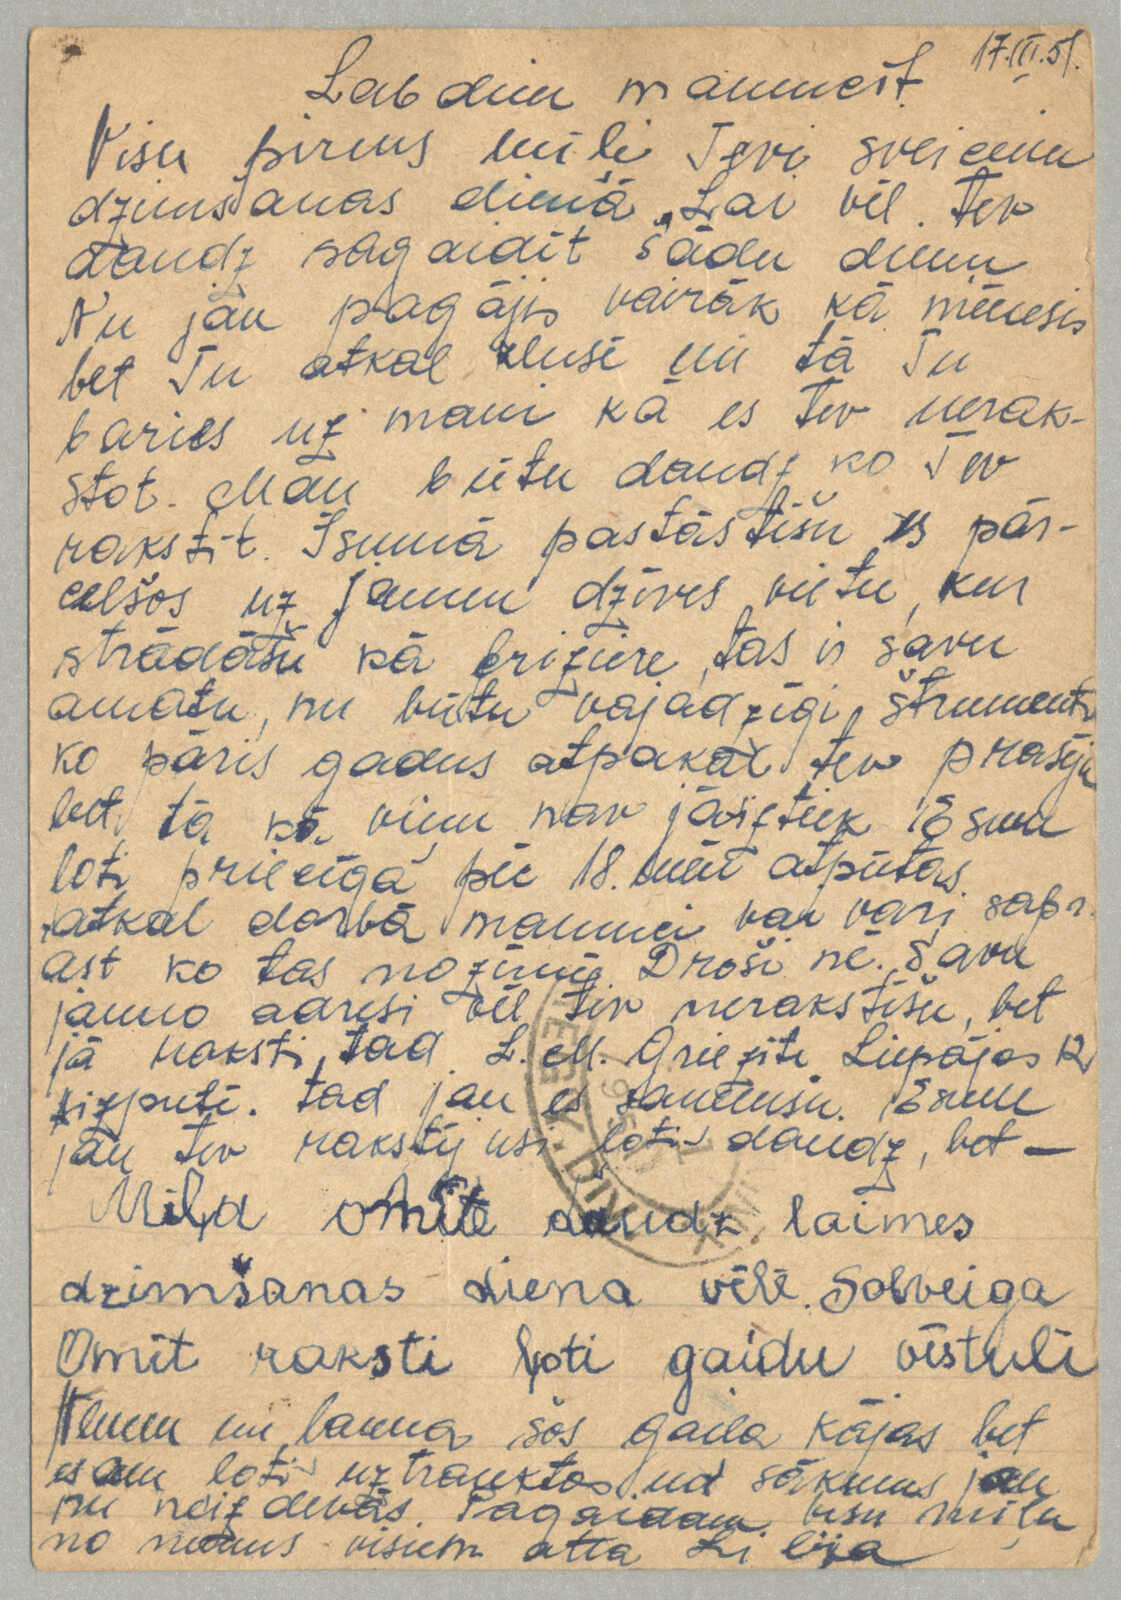 17.III.51.
Labdien mammeit.
Visu pirms mīļi Tevi sveicinu
dzimšanas dienā. Lai vēl Tev
daudz sagaidīt šādu dienu
Nu jau pagājis vairāk kā mēnesis
bet Tu atkal klusē un tā Tu
baries uz mani kā es Tev nerak-
stot. Man būtu daudz ko Tev
rakstīt. Īsumā pastāstīšu es pār-
celšos uz jaunu dzīves vietu, kur
strādāšu kā friziere, tas ir savu
amatu, nu būtu vajadzīgi štrumenti
ko pāris gadus atpakaļ tev prasīju
bet tā kā viņu nav jāiztiek. Esmu
ļoti priecīga pēc 18. mēn atpūtas
atkal darbā mammiņ vai vari sapr-
ast ko tas nozīmē Droši nē. Savu
jauno adresi vēl tev nerakstīšu, bet
jā raksti, tad L. M. Griezīte Liepājas 12
Aizputē. tad jau es saņemšu. Esmu
jau tev rakstījusi ļoti daudz, bet —
Mīļa omīte daudz laimes
dzimšanas diena vēlē Solveiga
Omīt raksti ļoti gaidu vēstuli
Ņem un launa šos gaiļa kājas bet
esam ļoti uztrauktas un sākums jau
nu neizdevās. Pagaidam visu mīļu
no mums visiem atta Lilija